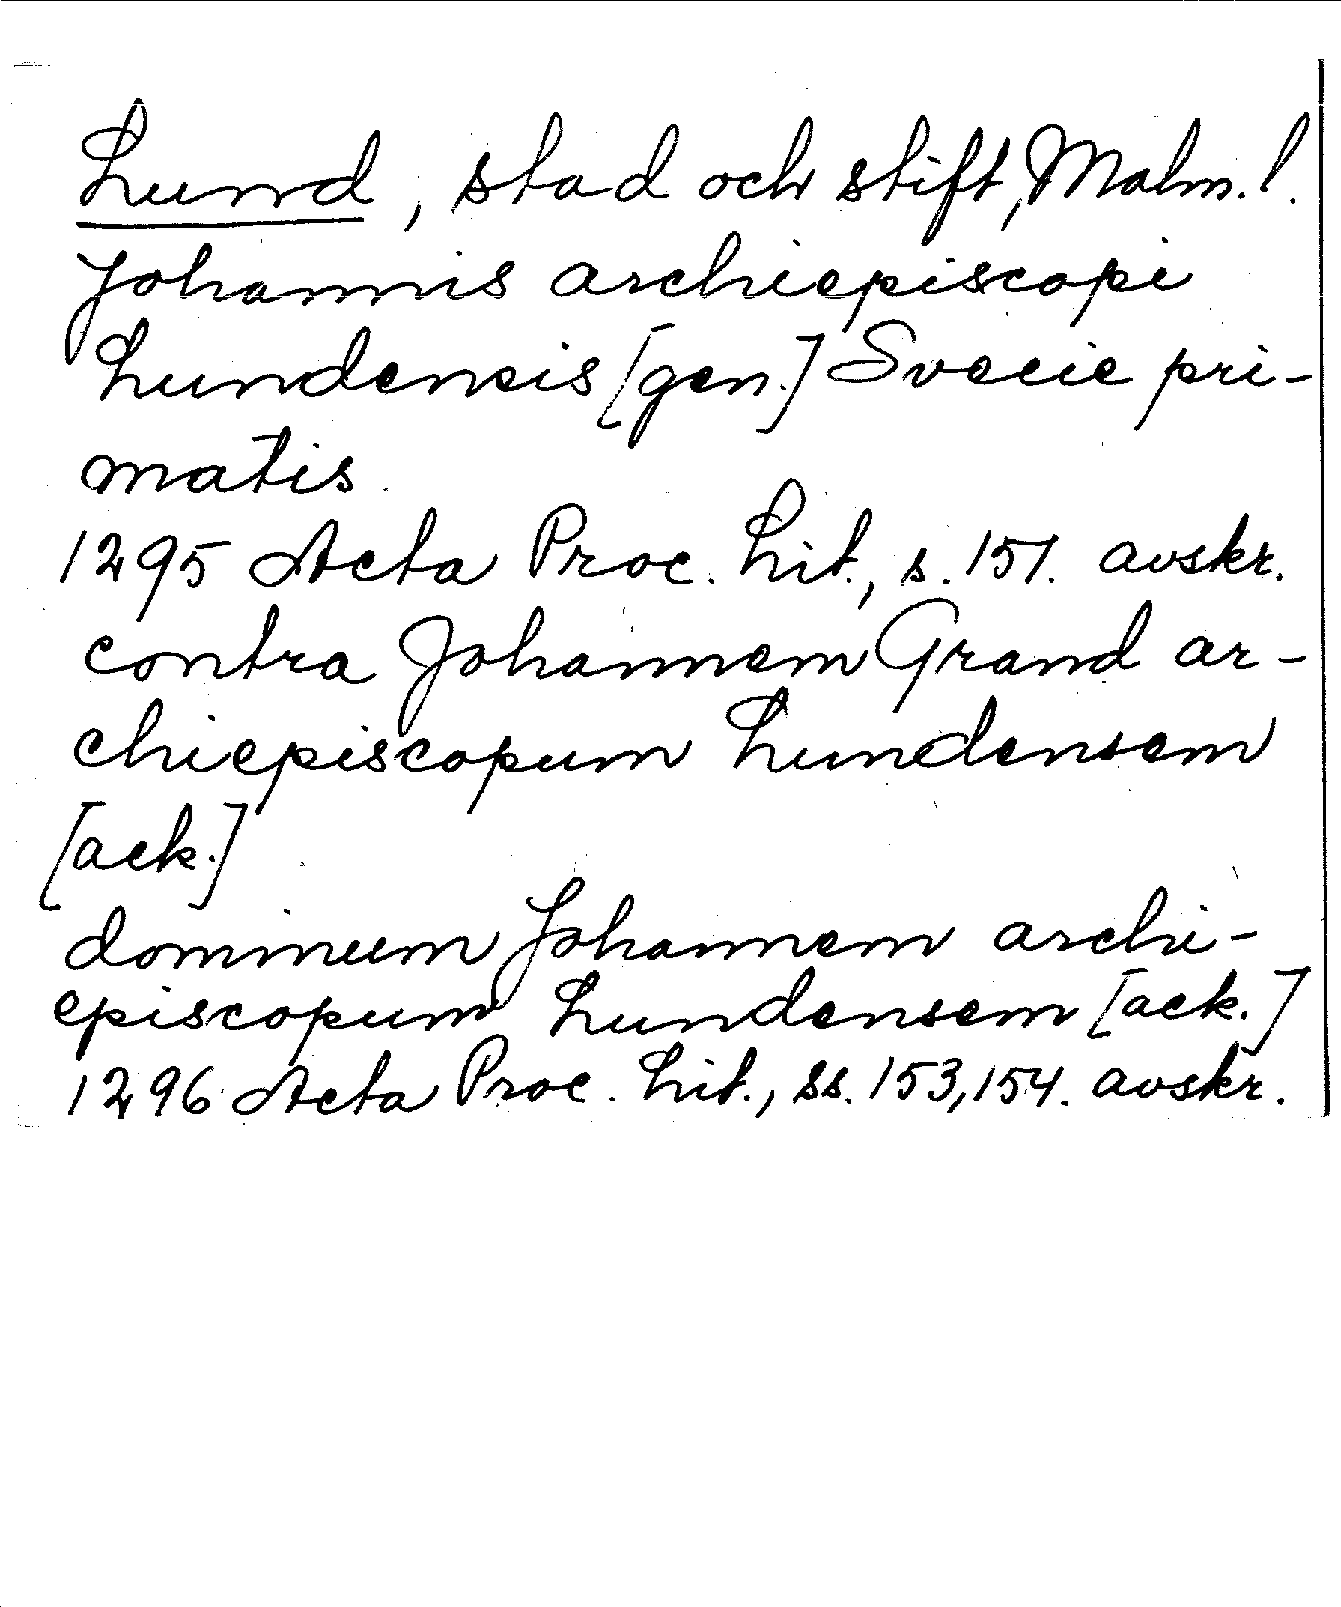 Lund, stad och stift, Malm. l.
Johannis archiepiscopi
Lundensis [gen.] Svecie pri-
matis
1295 Acta Proc. Lit., s. 151. avskr.
contra Johannem Grand ar-
chiepiscopum Lundensem
[ack.]
dominum Johannem archi-
episcopum Lundensem [ack.]
1296 Acta Proc. Lit., ss. 153, 154. avskr.